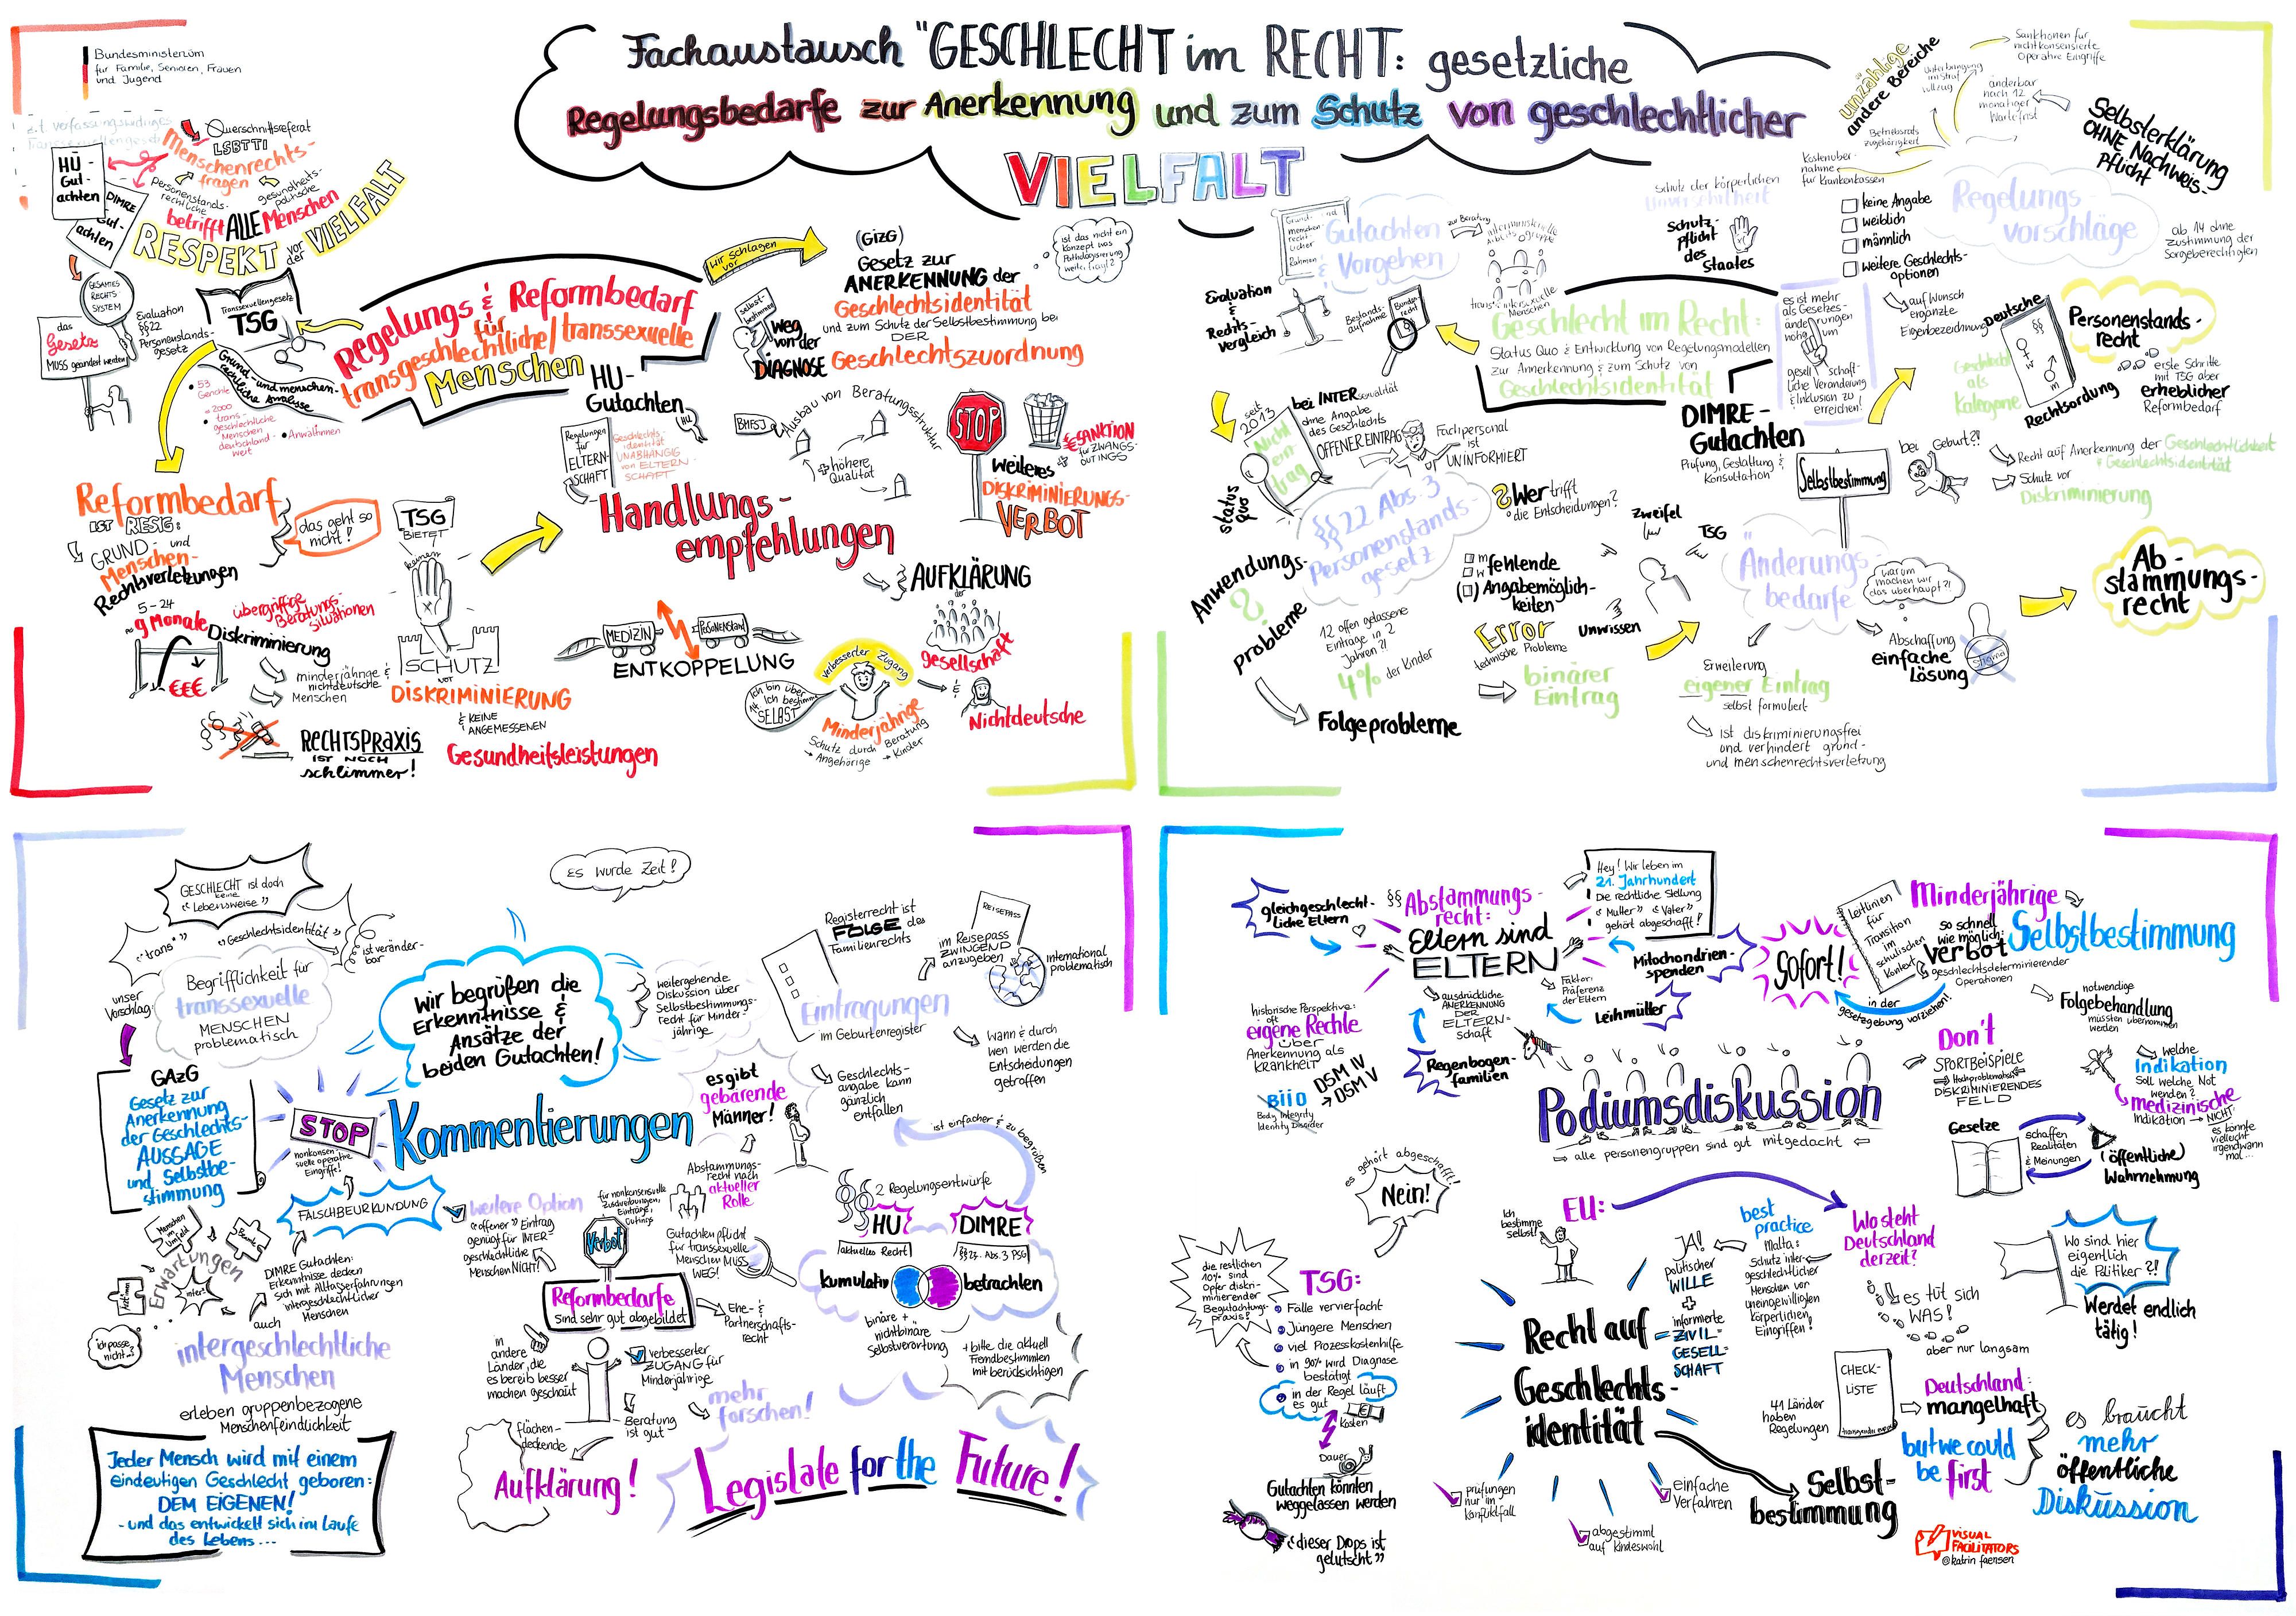 Bundesministerium
für Familie, Senioren, Frauen
und Jugend
Fachaustausch "GESCHLECHT im RECHT: gesetzliche
Regelungsbedarfe zur Anerkennung und zum Schutz von geschlechtlicher
VIELFALT
HU-
Gut-
achten
DIMRE
Gut-
achten
Querschnittsreferat
LSBTTI
Menschenrechts-
fragen
Personenstands-
rechtliche
gesundheits-
politische
betrifft ALLE Menschen
RESPEKT vor der VIELFALT
GESAMTES
RECHTS-
SYSTEM
das
Gesetz
MUSS geändert werden!
Evaluation
§§22
Personenstands-
gesetz
Transsexuellengesetz
TSG
Grund- und menschen-
rechtliche Analyse
53
Gerichte
≈2000
trans-
geschlechtliche
Menschen
deutschland-
weit
AnwältInnen
Regelungs & Reformbedarf
für
transgeschlechtliche/transsexuelle
Menschen
HU-
Gutachten
wir schlagen
vor
(GizG)
Gesetz zur
ANERKENNUNG der
Geschlechtsidentität
und zum Schutz der Selbstbestimmung bei
DER
Geschlechtszuordnung
ist das nicht ein
Konzept was
Pathologisierung
weiter trägt?
selbst-
bestimmen
weg
von der
DIAGNOSE
Reformbedarf
IST RIESIG:
GRUND- und
Menschen-
Rechtsverletzungen
das geht so
nicht!
TSG
BIETET
keinen
SCHUTZ
vor
DISKRIMINIERUNG
& KEINE
ANGEMESSENEN
Gesundheitsleistungen
5-24
9 Monate
€€€
übergriffige
Beratungs-
situationen
Diskriminierung
minderjährige &
nichtdeutsche
Menschen
RECHTSPRAXIS
IST NOCH
schlimmer!
Regelungen
für
ELTERN-
SCHAFT
Geschlechts-
identität
UNABHÄNGIG
von ELTERN-
SCHAFT
HU
BMFSJ
Ausbau von Beratungsstruktur
höhere
Qualität
STOP
€ SANKTION
für ZWANGS-
OUTINGS
weiteres
DISKRIMINIERUNGS-
VERBOT
Handlungs-
empfehlungen
AUFKLÄRUNG
der
gesellschaft
MEDIZIN
PERSONENSTAND
ENTKOPPELUNG
Ich bin über
14 Ich bestimme
SELBST
verbesserter Zugang
Minderjährige
Schutz durch Beratung
→ Angehörige → Kinder
&
Nichtdeutsche
Grund- und
menschen-
recht-
licher
Rahmen
Gutachten
& Vorgehen
zur Beratung
interministerielle
Arbeitsgruppe
trans-/intersexuelle
Menschen
Evaluation
&
Rechts-
vergleich
Bestands-
aufnahme
Bundes-
recht
Geschlecht im Recht:
Status Quo & Entwicklung von Regelungsmodellen
zur Anerkennung & zum Schutz von
Geschlechtsidentität
DIMRE-
Gutachten
Prüfung, Gestaltung &
Konsultation
Schutz der körperlichen
Unversehrtheit
Schutz-
pflicht
des
Staates
es ist mehr
als Gesetzes-
änderungen
nötig um
gesellschaft-
liche Veränderung
& Inklusion zu
erreichen!
unzählige
andere Bereiche
Sanktionen für
nicht konsensierte
Operative Eingriffe
Unterbringung
im Straf-
vollzug
änderbar
nach 12
monatiger
Wartefrist
Betriebsrats
zugehörigkeit
Kostenüber-
nahme
für Krankenkassen
Selbsterklärung
OHNE Nachweis-
pflicht
keine Angabe
weiblich
männlich
weitere Geschlechts-
optionen
auf Wunsch
ergänzte
Eigenbezeichnung
Regelungs-
vorschläge
ab 14 ohne
Zustimmung der
Sorgeberechtigten
Deutsche
Rechtsordung
Geschlecht
als
Kategorie
§§
Personenstands-
recht
erste Schritte
mit TSG aber
erheblicher
Reformbedarf
seit
2013
Nicht
ein-
trag
status
quo
bei INTERsexualität
ohne Angabe
des Geschlechts
OFFENER EINTRAG
Fachpersonal
ist
UNINFORMIERT
§§22 Abs. 3
Personenstands-
gesetz
Wer trifft
die Entscheidungen?
Anwendungs-
?
probleme
12 offen gelassene
Einträge in 2
Jahren?!
4% der Kinder
Folgeprobleme
m
w
fehlende
Angabemöglich-
keiten
Error
technische Probleme
binärer
Eintrag
Zweifel
TSG
unwissen
Selbstbestimmung
bei Geburt?!
Recht auf Anerkennung der Geschlechtlichkeit
& Geschlechtsidentität
Schutz vor
Diskriminierung
Änderungs-
bedarfe
warum
machen wir
das überhaupt?!
Erweiterung
eigener Eintrag
selbst formuliert
ist diskriminierungsfrei
und verhindert grund-
und menschenrechtsverletzung
Abschaffung
einfache
Lösung
Stigma
Ab-
stammungs-
recht
GESCHLECHT ist doch
keine
"Lebensweise"
"trans*"
"Geschlechtsidentität"
ist veränder-
bar
Begrifflichkeit für
transsexuelle
MENSCHEN
problematisch
unser
Vorschlag:
GAzG
Gesetz zur
Anerkennung
der Geschlechts-
AUSSAGE
und Selbstbe-
stimmung
STOP
nonkonsen-
suelle operative
Eingriffe!
FALSCHBEURKUNDUNG
Menschen
im
Umfeld
Erwartungen
inter*
ich passe
nicht...?
DIMRE Gutachten:
Erkenntnisse decken
sich mit Alltagserfahrungen
intergeschlechtlicher
Menschen
auch
intergeschlechtliche
Menschen
erleben gruppenbezogene
Menschenfeindlichkeit
Jeder Mensch wird mit einem
eindeutigen Geschlecht geboren:
DEM EIGENEN!
- und das entwickelt sich im Laufe
des Lebens...
Es wurde Zeit!
wir begrüßen die
Erkenntnisse &
Ansätze der
beiden Gutachten!
weitergehende
Diskussion über
Selbstbestimmungs-
recht für Minder-
jährige
Kommentierungen
es gibt
gebärende
Männer!
Abstammungs-
recht nach
aktueller
Rolle
Registerrecht ist
FOLGE des
Familienrechts
Eintragungen
im Geburtenregister
im Reisepass
ZWINGEND
anzugeben
REISEPASS
International
problematisch
Wann & durch
wen werden die
Entscheidungen
getroffen
Geschlechts-
angabe kann
gänzlich
entfallen
ist einfacher & zu begrüßen
weitere Option
"offener" Eintrag
genügt für INTER-
geschlechtliche
Menschen NICHT!
für nonkonsensuelle
Zuschreibungen,
Einträge,
Outings
Verbot
Gutachtenpflicht
für transsexuelle
Menschen MUSS
WEG!
2 Regelungsentwürfe
HU
DIMRE
aktuelles Recht
§§22 Abs. 3 PSG
kumulativ
betrachten
binäre +
nichtbinäre
Selbstverortung
+ bitte die aktuell
Fremdbestimmten
mit berücksichtigen
Reformbedarfe
Sind sehr gut abgebildet
Ehe- &
Partnerschafts-
recht
in
andere
Länder, die
es bereits besser
machen geschaut
verbesserter
ZUGANG für
Minderjährige
Beratung
ist gut
mehr
forschen!
flächen-
deckende
Aufklärung!
Legislate for the Future!
gleichgeschlecht-
liche Eltern
§§ Abstammungs-
recht:
Eltern sind
ELTERN
Hey! Wir leben im
21. Jahrhundert
Die rechtliche Stellung
"Mutter" & "Vater"
gehört abgeschafft!
Mitochondrien-
spenden
Faktor:
Präferenz
der Eltern
Leihmütter
ausdrückliche
ANERKENNUNG
DER
ELTERN-
schaft
Regenbogen-
familien
historische Perspektive:
oft
eigene Rechte
über
Anerkennung als
KRANKHEIT
BIID
Body Integrity
Identity Disorder
DSM IV
→ DSM V
Sofort!
Leitlinien
für
Transition
im
schulischen
Kontext
Minderjährige
so schnell
wie möglich:
Verbot
geschlechtsdeterminierender
Operationen
Selbstbestimmung
in der
gesetzgebung vorziehen!
notwendige
Folgebehandlung
müssten übernommen
werden
Don't
SPORTBEISPIELE
Hochproblematisch
DISKRIMINIERENDES
FELD
welche
Indikation
Soll welche Not
wenden?
medizinische
Indikation → NICHT
es könnte
vielleicht
irgendwann
mal...
Gesetze
schaffen
Realitäten
& Meinungen
(öffentliche)
Wahrnehmung
Podiumsdiskussion
⇒ alle personengruppen sind gut mitgedacht ⇐
es gehört abgeschafft!
Nein!
die restlichen
10% sind
Opfer diskri-
minierender
Begutachtungs-
praxis!
TSG:
Fälle vervierfacht
Jüngere Menschen
viel Prozesskostenhilfe
in 90% wird Diagnose
bestätigt
in der Regel läuft
es gut
Kosten
Dauer
Gutachten könnten
weggelassen werden
"dieser Drops ist
gelutscht"
Ich
bestimme
selbst!
EU:
JA!
politischer
WILLE
+
informierte
ZIVIL-
GESELL-
SCHAFT
best
practice
Malta:
Schutz inter-
geschlechtlicher
Menschen vor
uneingewilligten
körperlichen
Eingriffen!
Wo steht
Deutschland
derzeit?
es tut sich
WAS!
aber nur langsam
Wo sind hier
eigentlich
die Politiker?!
Werdet endlich
tätig!
Recht auf
Geschlechts-
identität
prüfungen
nur im
Konfliktfall
abgestimmt
auf Kindeswohl
einfache
Verfahren
Selbst-
bestimmung
41 Länder
haben
Regelungen
CHECK-
LISTE
Deutschland:
mangelhaft
but we could
be first
es braucht
mehr
öffentliche
Diskussion
VISUAL
FACILITATORS
@katrin faensen